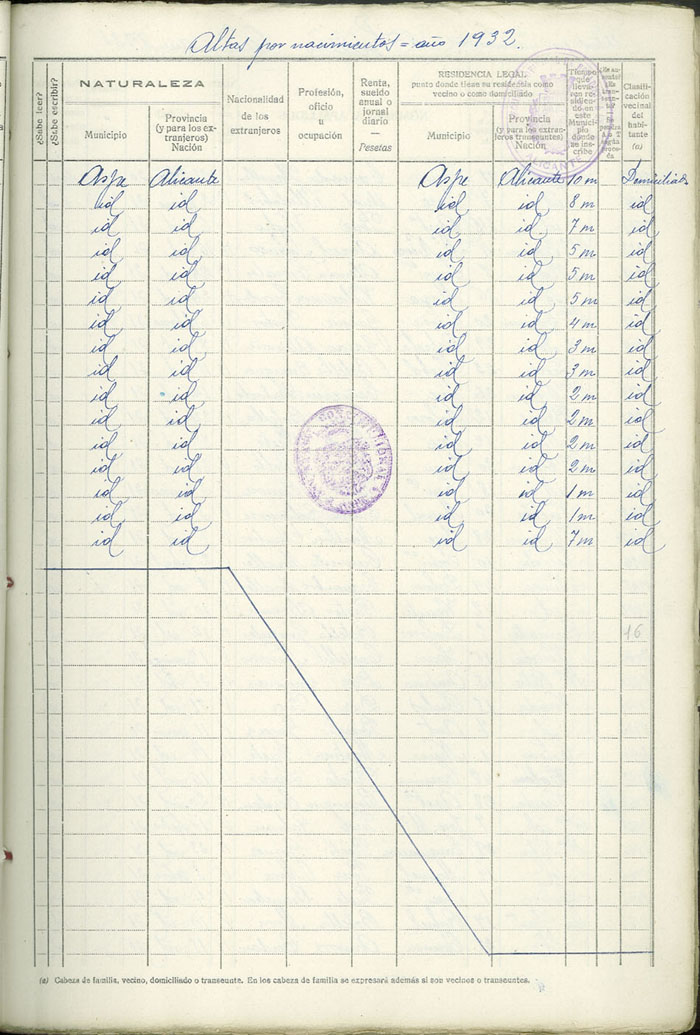 Altas por nacimientos = año 1932.
¿Sabe leer?
¿Sabe escribir?
NATURALEZA
Municipio
Provincia
(y para los ex-
tranjeros)
Nación
Nacionalidad
de los
extranjeros
Profesión,
oficio
u
ocupación
Renta,
sueldo
anual o
jornal
diario
—
Pesetas
RESIDENCIA LEGAL
punto donde tiene su residencia como
vecino o como domiciliado
Municipio
Provincia
(y para los extran-
jeros transeuntes)
Nación
Tiempo
que
lleva
en
este
Munici-
pio
donde
se ins-
cribe
Clasifi-
cación
vecinal
del
habi-
tante
(a)
ALICANTE
Aspe Alicante Aspe Alicante 10 m Domiciliado
id id id id 8 m id
id id id id 7 m id
id id id id 5 m id
id id id id 5 m id
id id id id 5 m id
id id id id 4 m id
id id id id 3 m id
id id id id 3 m id
id id id id 2 m id
id id id id 2 m id
id id id id 2 m id
id id id id 2 m id
id id id id 1 m id
id id id id 1 m id
id id id id 7 m id
16
(a) Cabeza de familia, vecino, domiciliado o transeunte. En los cabeza de familia se expresará además si son vecinos o transeuntes.